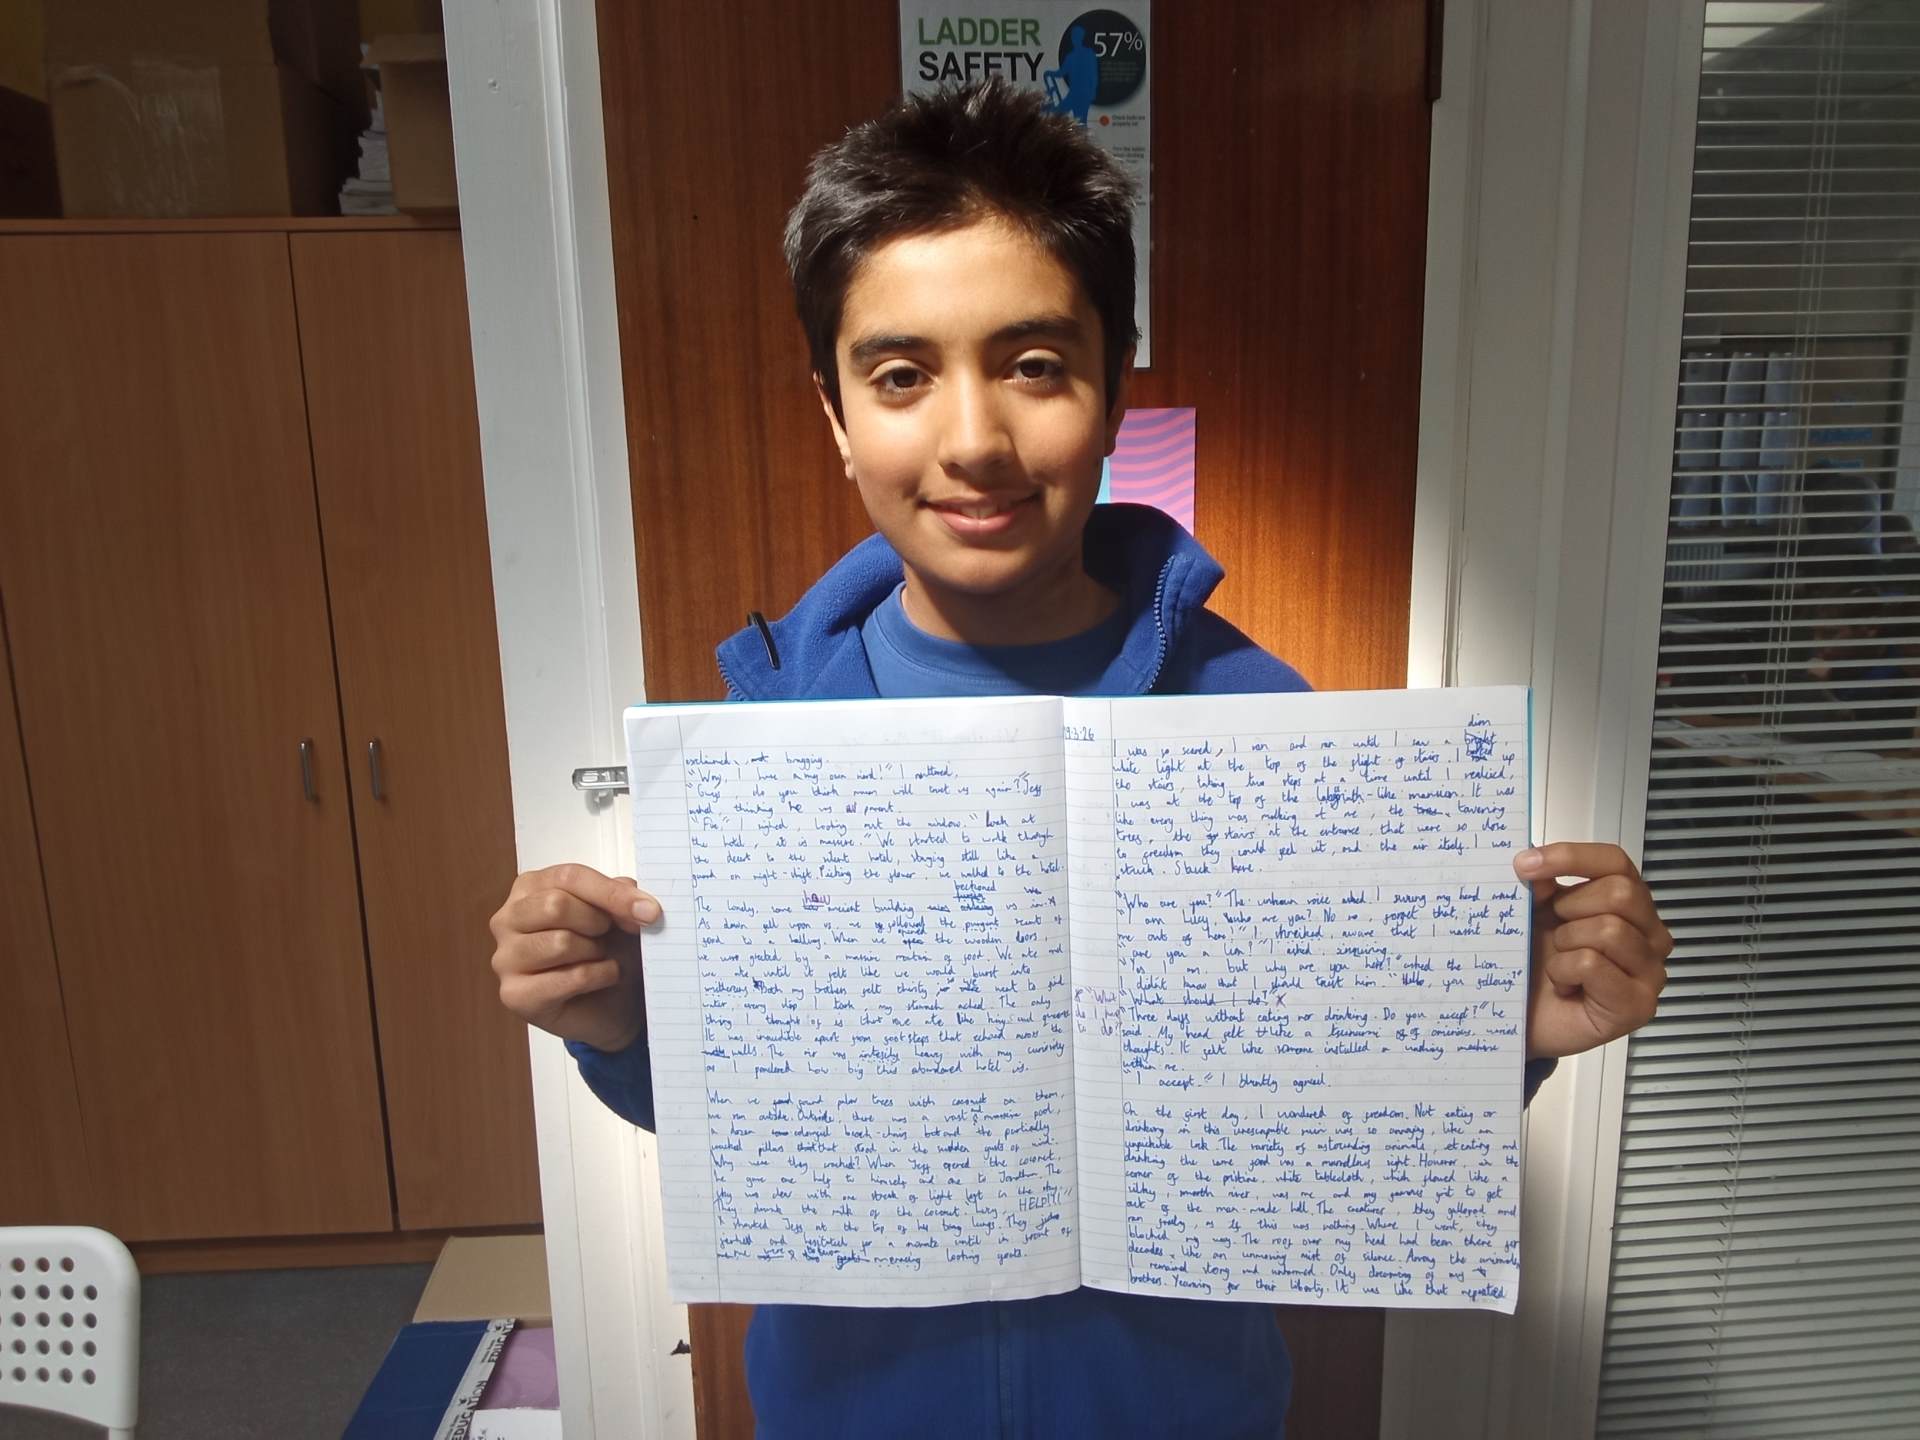 LADDER
SAFETY
57%
exclaimed, bragging.
"Wny, I have a my own nerd!" I muttered.
"Guys, do you think mum will trust us again?" Jeff
asked, thinking he was a parent.
"Fue," I sighed, looking out the window. "Look at
the hotel, it is massive." We started to walk though
the desert to the silent hotel, staying still like a
guard on night-shift. Picking the flower, we walked to the hotel.
beckoned We
The lonely, some how ancient building us in.
As dawn fell upon us, we followed the pungent scent of
food to a hallway. When we opened the wooden doors,
we were greeted by a massive mountain of food. We ate and
we ate until it felt like we would burst into
smithereens. Both my brothers felt thirsty so we went to find
water, every step I took, my stomach ached. The only
thing I thought of is that we ate like kings and queens.
It was inaudible apart from footsteps that echoed across the
walls. The air was intensity heavy with my curiosity
as I pondered how big this abandoned hotel is.
When we found palm trees with coconuts on them,
we ran outside. Outside, there was a vast and massive pool,
a dozen enlarged beach-chairs, and the partially
cracked pillars that stood in the sudden gusts of wind.
Why were they cracked? When Jeff opened the coconut,
he gave one half to himself and one to Jonathan. The
sky was clear with one streak of light left in the sky.
They drunk the milk of the coconut. Lucy, HELP!!!"
shouted Jeff at the top of his lungs. They
and hesitated for a minute until in front of
me were menacing looking goats.
9.3.26
dim
I was so scared, I ran and ran until I saw a bright,
white light at the top of the flight of stairs. I up
the stairs, taking two steps at a time until I realised,
I was at the top of the labyrinth-like mansion. It was
like every thing was mulking at me, the towering
trees, the stairs at the entrance, that were so close
to freedom they could feel it, and the air itself. I was
stuck. Stuck here.
"Who are you?" The unknown voice asked. I swung my head around.
"I am Lucy, who are you? No no, forget that, just get
me outs of here!" I shreiked, aware that I wasnt alone,
"are you a lion?" I asked, inquiring.
"Yes I am, but why are you here?" asked the Lion.
I didn't know that I should trust him. "Hello, you following?"
"What should I do?"
"What
do I have
to do?"
"Three days without eating nor drinking. Do you accept?" he
said. My head felt like a tsunami of omionious, varied
thoughts. It felt like someone installed a washing machine
within me.
"I accept." I bluntly agreed.
On the first day, I wondered of freedom. Not eating or
drinking in this unescapable ruin was so annoying, like an
unpickable lock. The variety of astounding animals, eating and
drinking the same food was a marvellous sight. However, in the
corner of the pristine, white tablecloth, which flowed like a
silky, smooth river, was me and my famous grit to get
out of the man-made hell. The creatures, they galloped and
ran freely, as if this was nothing. Where I went, they
blocked my way. The roof over my head had been there for
decades, like an unmoving mist of silence. Among the animals,
I remained strong and unharmed. Only dreaming of my
brothers. Yearning for their liberty. It was like that repeated
EDUCATION
EDUCATION